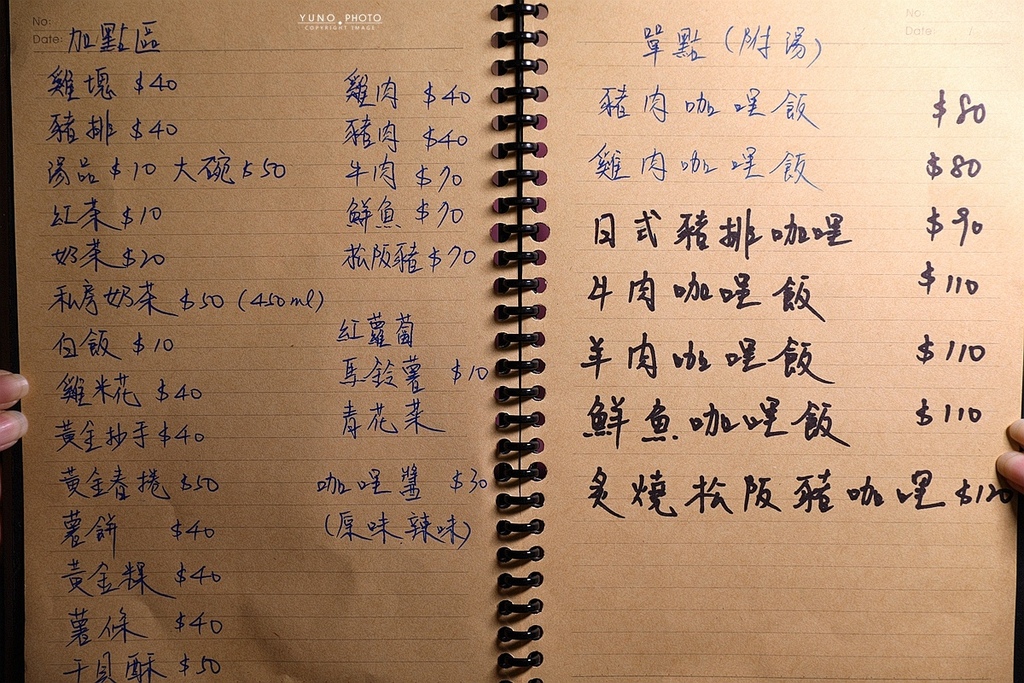 YUNO PHOTO
COPYRIGHT IMAGE
No:
Date: 加點區
雞塊 $40
豬排 $40
湯品 $10 大碗 $50
紅茶 $10
奶茶 $20
私房奶茶 $50 (450ml)
白飯 $10
雞米花 $40
黃金抄手 $40
黃金春捲 $50
薯餅 $40
黃金粿 $40
薯條 $40
干貝酥 $50
雞肉 $40
豬肉 $40
牛肉 $70
鮮魚 $70
松阪豬 $70
紅蘿蔔
馬鈴薯 $10
青花菜
咖哩醬 $30
(原味.辣味)
No:
Date: /
單點 (附湯)
豬肉咖哩飯 $80
雞肉咖哩飯 $80
日式豬排咖哩 $90
牛肉咖哩飯 $110
羊肉咖哩飯 $110
鮮魚咖哩飯 $110
炙燒松阪豬咖哩 $120